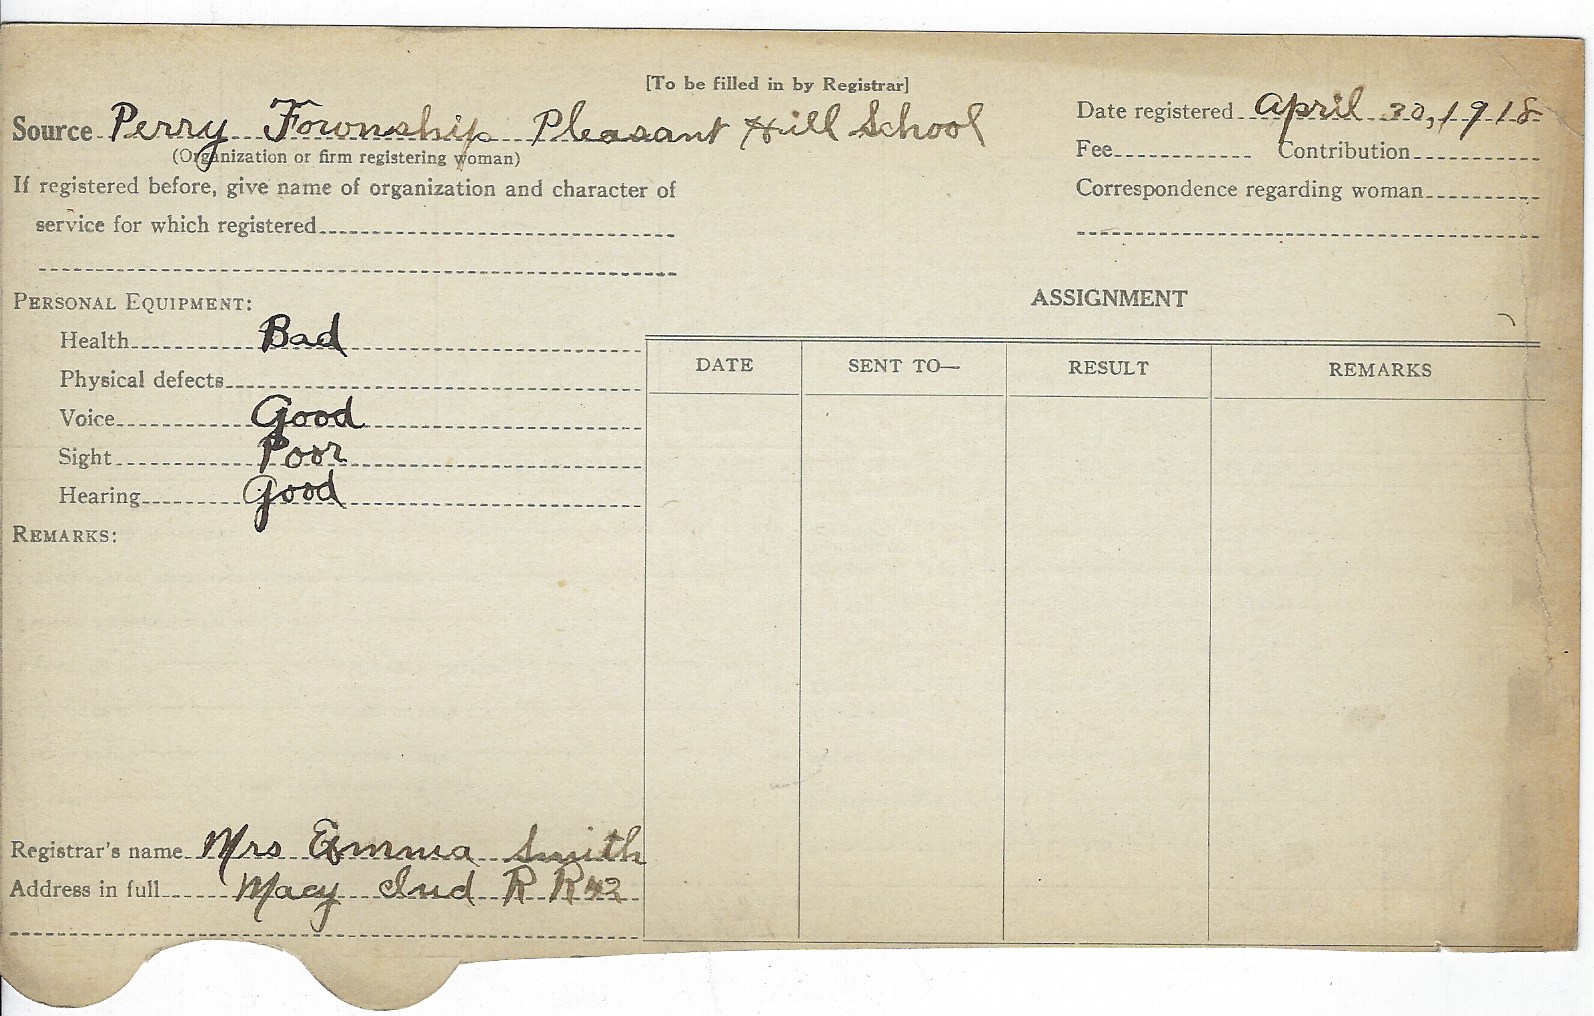 [To be filled in by Registrar]
Source Perry Township Pleasant Hill School
(Organization or firm registering woman)
Date registered April 30, 1918
Fee Contribution
If registered before, give name of organization and character of
service for which registered
Correspondence regarding woman
PERSONAL EQUIPMENT:
Health Bad
Physical defects
Voice Good
Sight Poor
Hearing Good
REMARKS:
ASSIGNMENT
DATE SENT TO— RESULT REMARKS
Registrar's name Mrs Emma Smith
Address in full Macy Ind R R